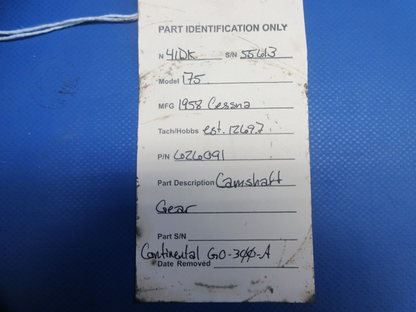 PART IDENTIFICATION ONLY
N 41DK S/N 55613
Model 175
MFG 1958 Cessna
Tach/Hobbs est. 1269.7
P/N 6026091
Part Description Camshaft
Gear
Part S/N
Continental GO-300-A
Date Removed